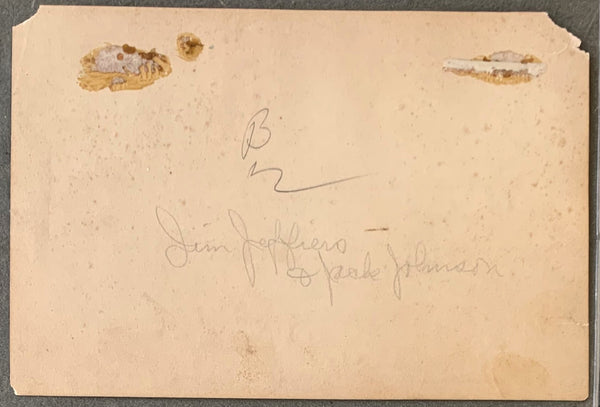 B
Jim Jeffiers
& Jack Johnson